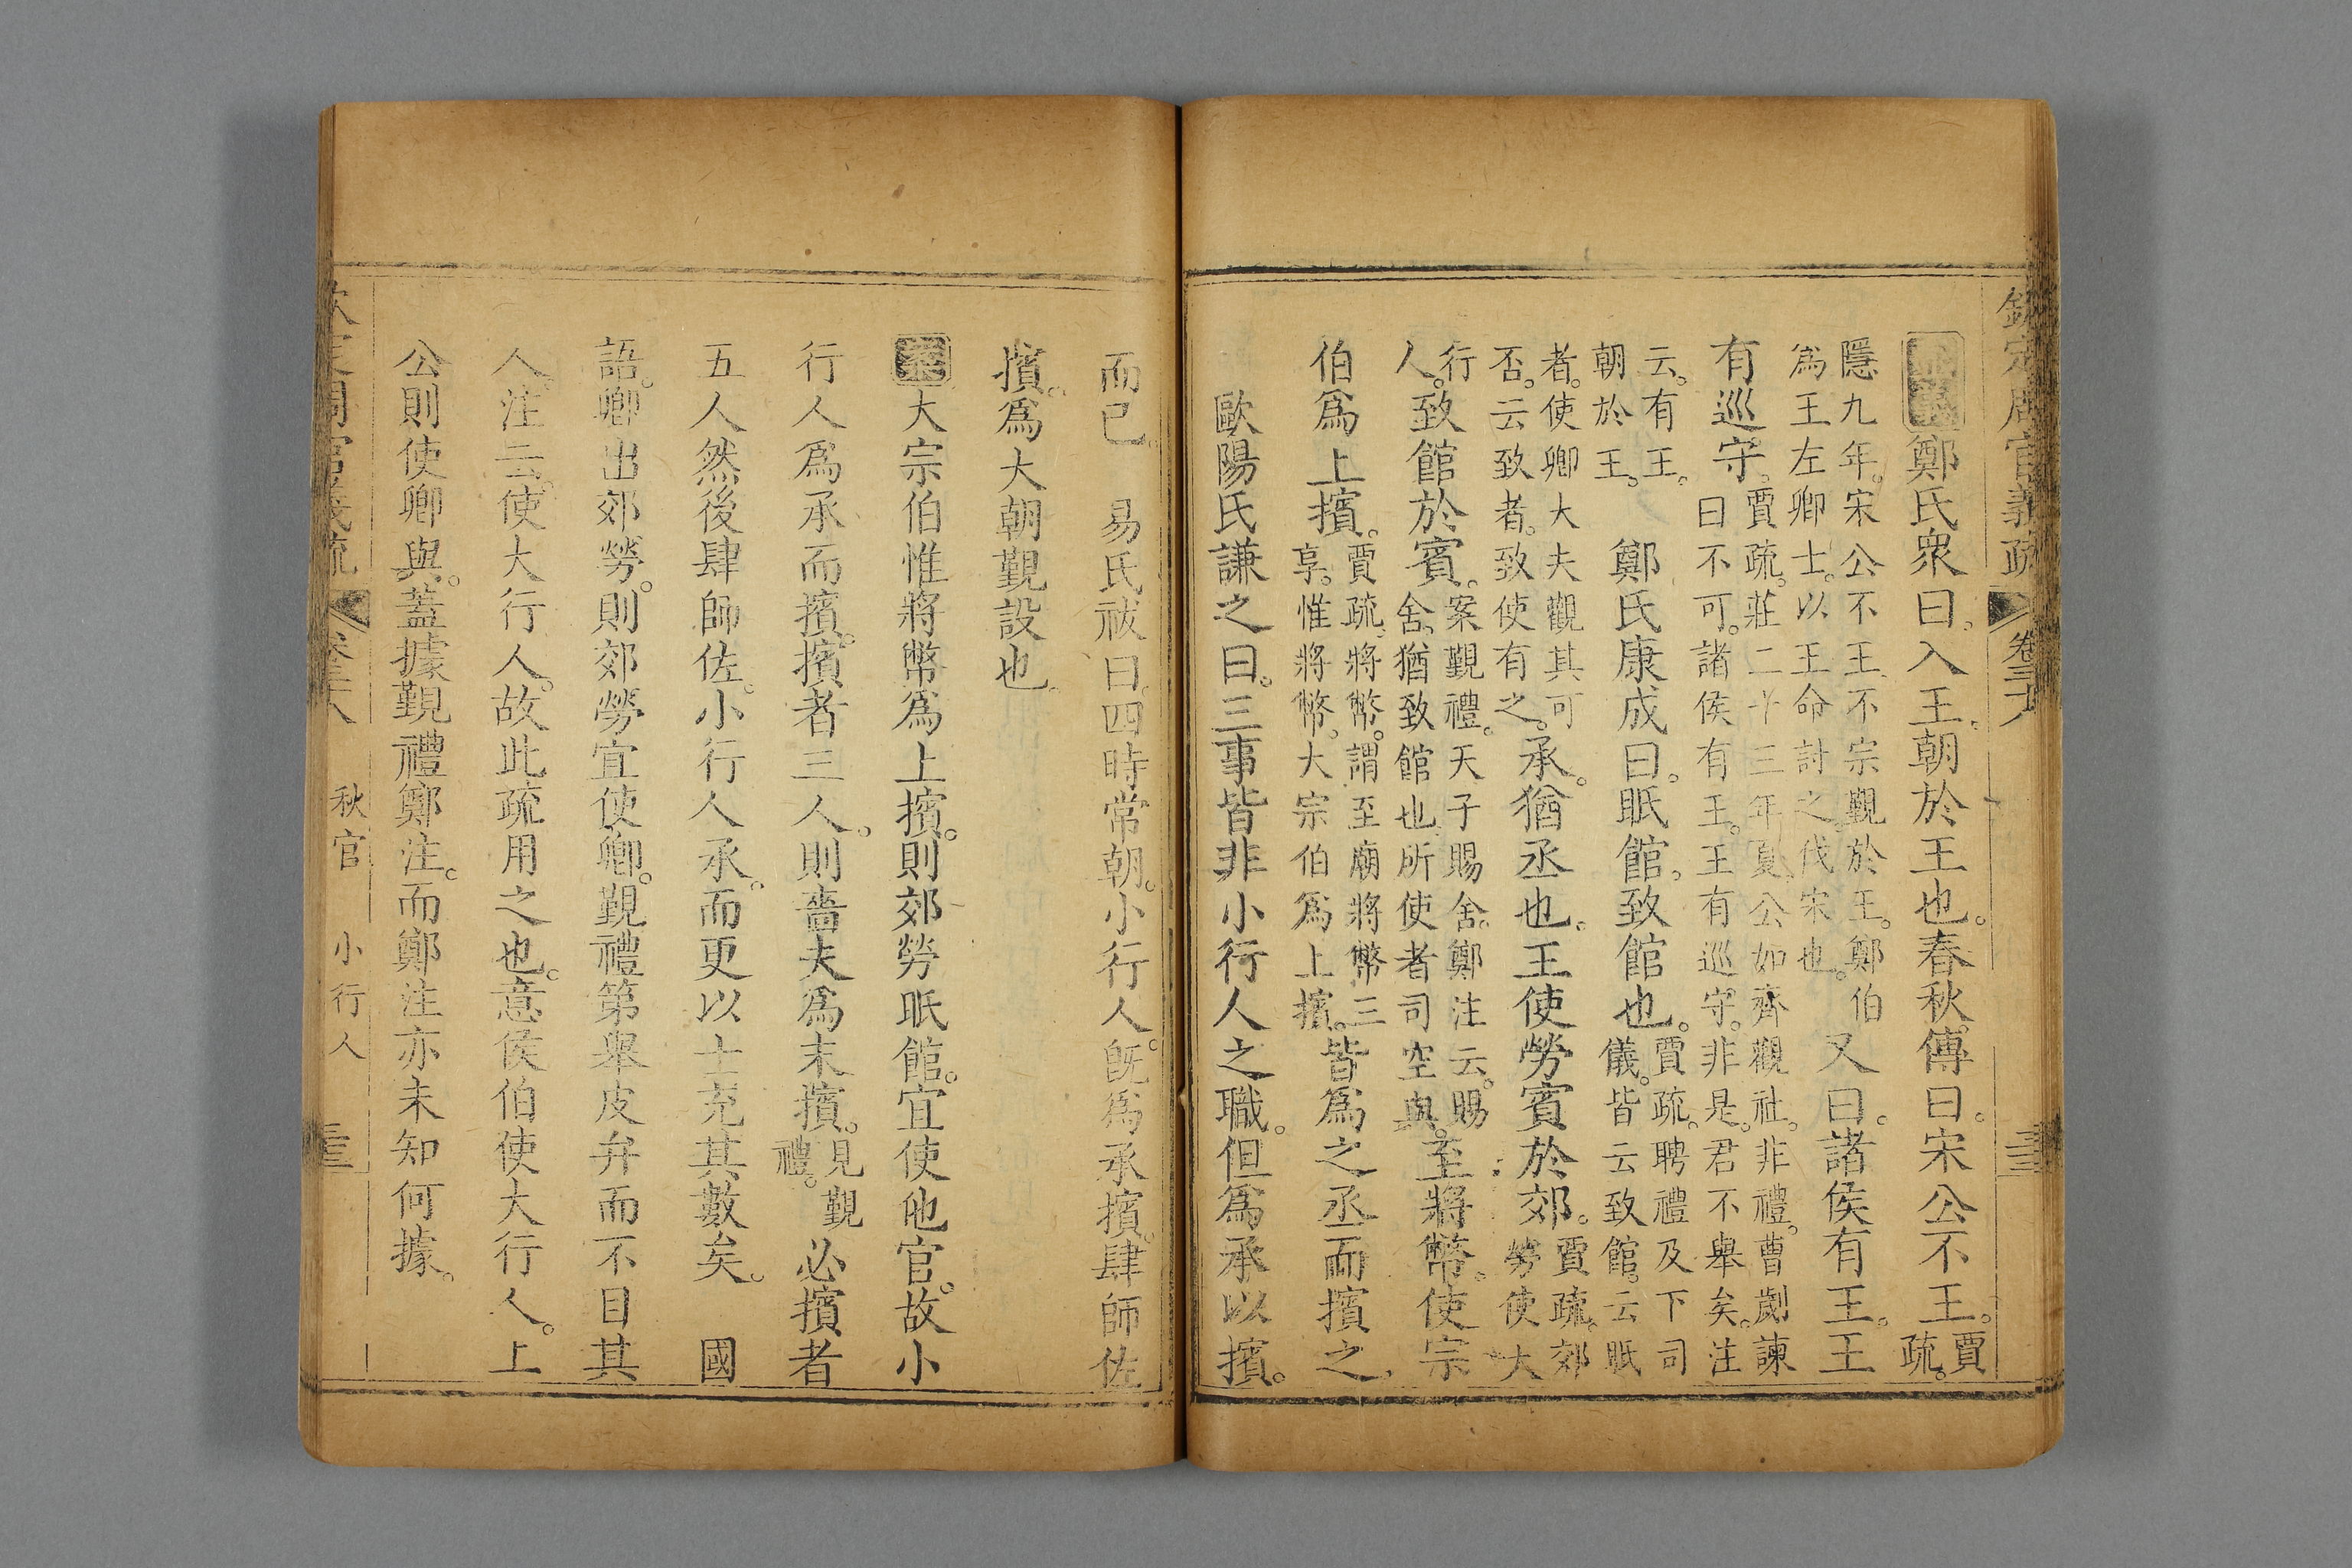 欽定周官義疏 卷三十八
正義鄭氏衆曰。入王。朝於王也。春秋傳曰。宋公不王。賈疏。
隱九年。宋公不王不宗覲於王。鄭伯爲王左卿士。以王命討之。伐宋也。又曰。諸侯有王。王
有巡守。賈疏。莊二十三年夏。公如齊觀社。非禮。曹劌諫曰不可。諸侯有王。王有巡守。非是。君不舉矣。注
云。有王。朝於王。 鄭氏康成曰。眂館。致館也。賈疏。聘禮及下司儀。皆云致館。云眂
者。使卿大夫觀其可否。云致者。致使有之。承。猶丞也。王使勞賓於郊。賈疏。郊勞使大
行人。致館於賓。案覲禮。天子賜舍。鄭注云。賜舍。猶致館也。所使者司空與。至將幣。使宗
伯爲上擯。賈疏。將幣。謂至廟將幣三享。惟將幣。大宗伯爲上擯。皆爲之丞而擯之。
歐陽氏謙之曰。三事皆非小行人之職。但爲承以擯。
而已。 易氏祓曰。四時常朝。小行人。旣爲承擯。肆師佐
擯。爲大朝覲設也。
案大宗伯惟將幣爲上擯。則郊勞眂館。宜使他官。故小
行人爲承而擯。擯者三人。則嗇夫爲末擯。見覲禮。必擯者
五人然後肆師佐。小行人承。而更以士充其數矣。 國
語。卿出郊勞。則郊勞宜使卿。覲禮第舉皮弁而不目其
人。注云。使大行人。故此疏用之也。意侯伯使大行人。上
公則使卿與。蓋據覲禮鄭注。而鄭注亦未知何據。
秋官 小行人